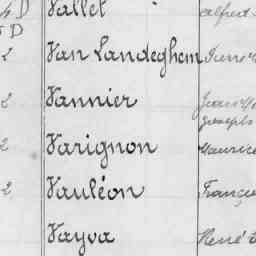 D Vallet Alfred
D
2 Van Landeghem
2 Vannier
Joseph
2 Varignon Maurice
2 Vauléon
Vayva René